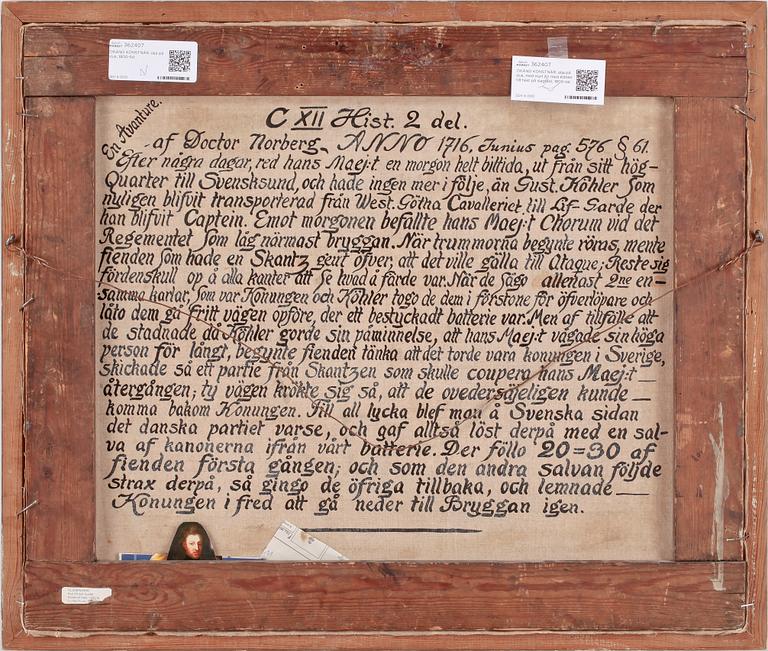 362407
OKÄND KONSTNÄR
362407
OKÄND KONSTNÄR
En Avanture.
C XII Hist. 2 del.
af Doctor Norberg. ANNO 1716, Junius pag. 576 § 61.
Efter några dagar, red hans Maej:t en morgon helt bittida, ut från sitt hög-
Quarter till Svensksund, och hade ingen mer i följe, än Gust. Köhler som
nyligen blifvit transporterad från West. Götha Cavalleriet till Lif Garde der
han blifvit Captein. Emot morgonen befallte hans Maej:t Chorum vid det
Regementet som låg närmast bryggan. När trummorna begynte röras, mente
fienden som hade en Skantz gent öfver, att det ville gälla till Ataque; Reste sig
fördenskull op å alla kanter att se hvad å färde var. När de sågo allenast 2ne en=
samma karlar, som var Konungen och Köhler togo de dem i förstone för öfverlöpare och
låto dem gå fritt vägen opföre, der ett bestyckadt batterie var. Men af tillfälle att
de stadnade då Köhler gorde sin påminnelse, att hans Maej:t vågade sin höga
person för långt, begynte fienden tänka att det torde vara konungen i Sverige,
skickade så ett partie från Skantzen som skulle coupera hans Maej:t
återgången; ty vägen krökte sig så, att de ovedersäjeligen kunde
komma bakom Konungen. Till all lycka blef man å Svenska sidan
det danska partiet varse, och gaf alltså löst derpå med en sal-
va af kanonerna ifrån vårt batterie. Der föllo 20=30 af
fienden första gången; och som den andra salvan följde
strax derpå, så gingo de öfriga tillbaka, och lemnade
Konungen i fred att gå neder till Bryggan igen.